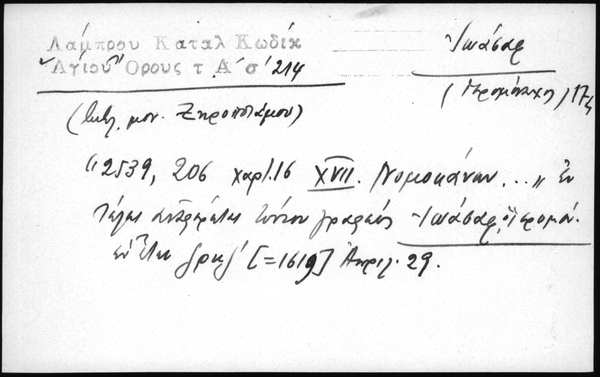 Λάμπρου Καταλ Κωδίκ
Ἁγίου Ὄρους τ Α΄ σ΄ 214
Ἰωάσαφ
(Ἱερομόναχος) 17ς
(Βιβλ. μον. Ξηροποτάμου)
"2539, 206 χαρτ. 16 XVII. Νομοκάνων ... " Ἐν
τέλει τούτου γραφεὺς Ἰωάσαφ, ἱερομόν.
ἐν ἔτει ζρκζ΄ [=1619] Ἀπριλ. 29.